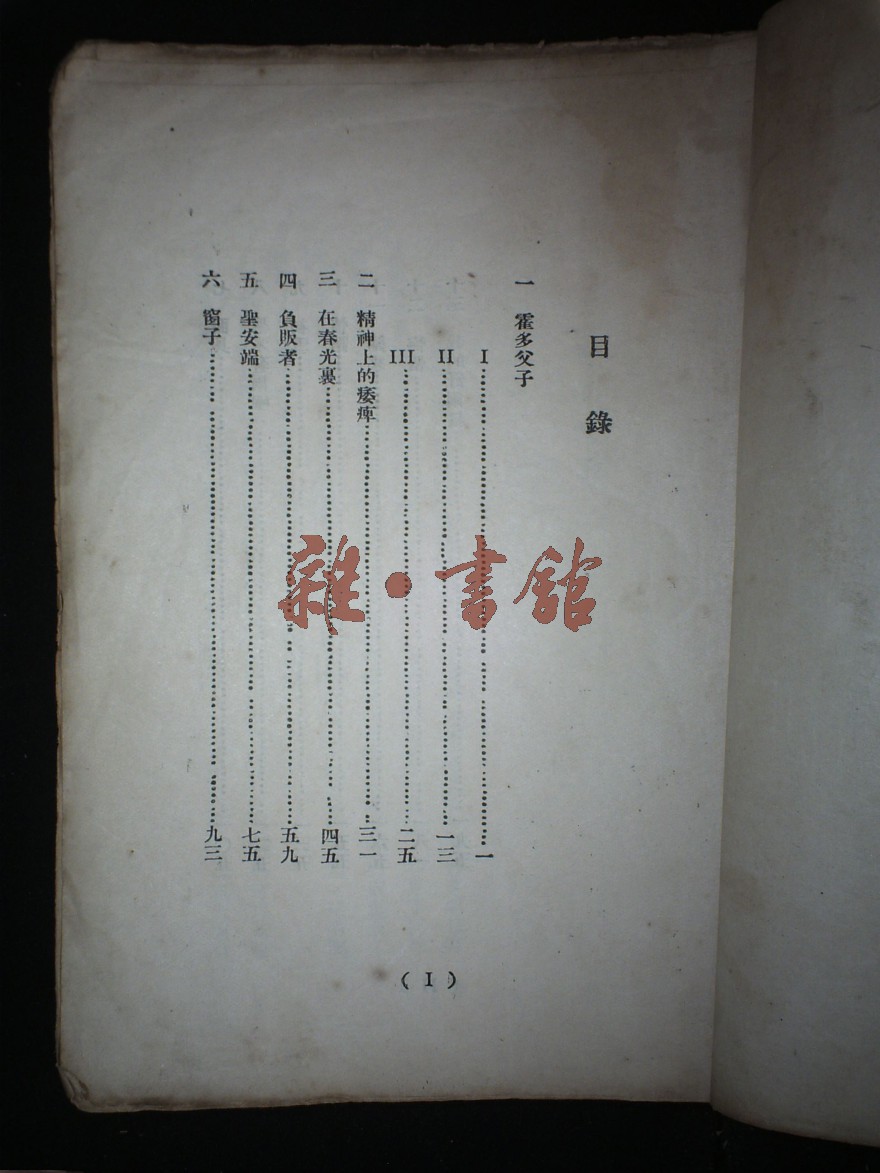 目錄
一 霍多父子
I……一
II……一三
III……二五
二 精神上的痿痺……三一
三 在春光裏……四五
四 負販者……五九
五 聖安端……七五
六 窗子……九三
(I)
雜·書館